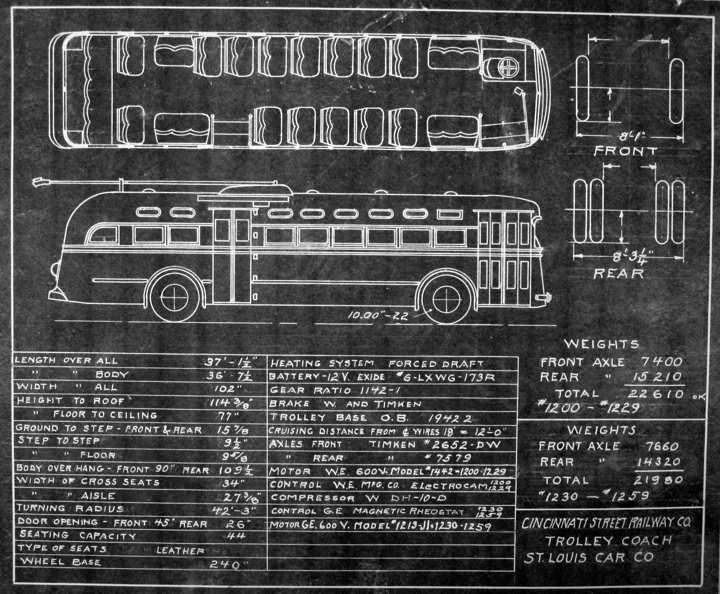 8'-1"
FRONT
8'-3 1/4"
REAR
10.00"-22
LENGTH OVER ALL 37'-1 1/2"
" " BODY 36'-7 1/2
WIDTH " ALL 102"
HEIGHT TO ROOF 114 3/8"
" FLOOR TO CEILING 77"
GROUND TO STEP - FRONT & REAR 15 7/8
STEP TO STEP 9 1/2"
" " FLOOR
BODY OVER HANG - FRONT 90" REAR 109 1/2
WIDTH OF CROSS SEATS 34"
" " AISLE 27 3/8
TURNING RADIUS 42'-3"
DOOR OPENING - FRONT 45" REAR 26"
SEATING CAPACITY 44
TYPE OF SEATS LEATHER
WHEEL BASE 240"
HEATING SYSTEM FORCED DRAFT
BATTERY-12 V. EXIDE #6-LXWG-173R
GEAR RATIO 1142-1
BRAKE W. AND TIMKEN
TROLLEY BASE O.B. 19422
CRUISING DISTANCE FROM ¢ WIRES 18' = 12'-0"
AXLES FRONT TIMKEN #2652-DW
" REAR " #7579
MOTOR W.E. 600V. MODEL #1442-1200-1229
CONTROL W.E. MFG. CO. ELECTROCAM 1200 1229
COMPRESSOR W DH-10-D
CONTROL G.E MAGNETIC RHEOSTAT 1230 1259
MOTOR GE. 600 V. MODEL #1213-J1 #1230-1259
WEIGHTS
FRONT AXLE 7400
REAR " 15210
TOTAL 22610 OK
#1200 - #1229
WEIGHTS
FRONT AXLE 7660
REAR " 14320
TOTAL 21980
#1230 - #1259
CINCINNATI STREET RAILWAY CO.
TROLLEY COACH
ST. LOUIS CAR CO